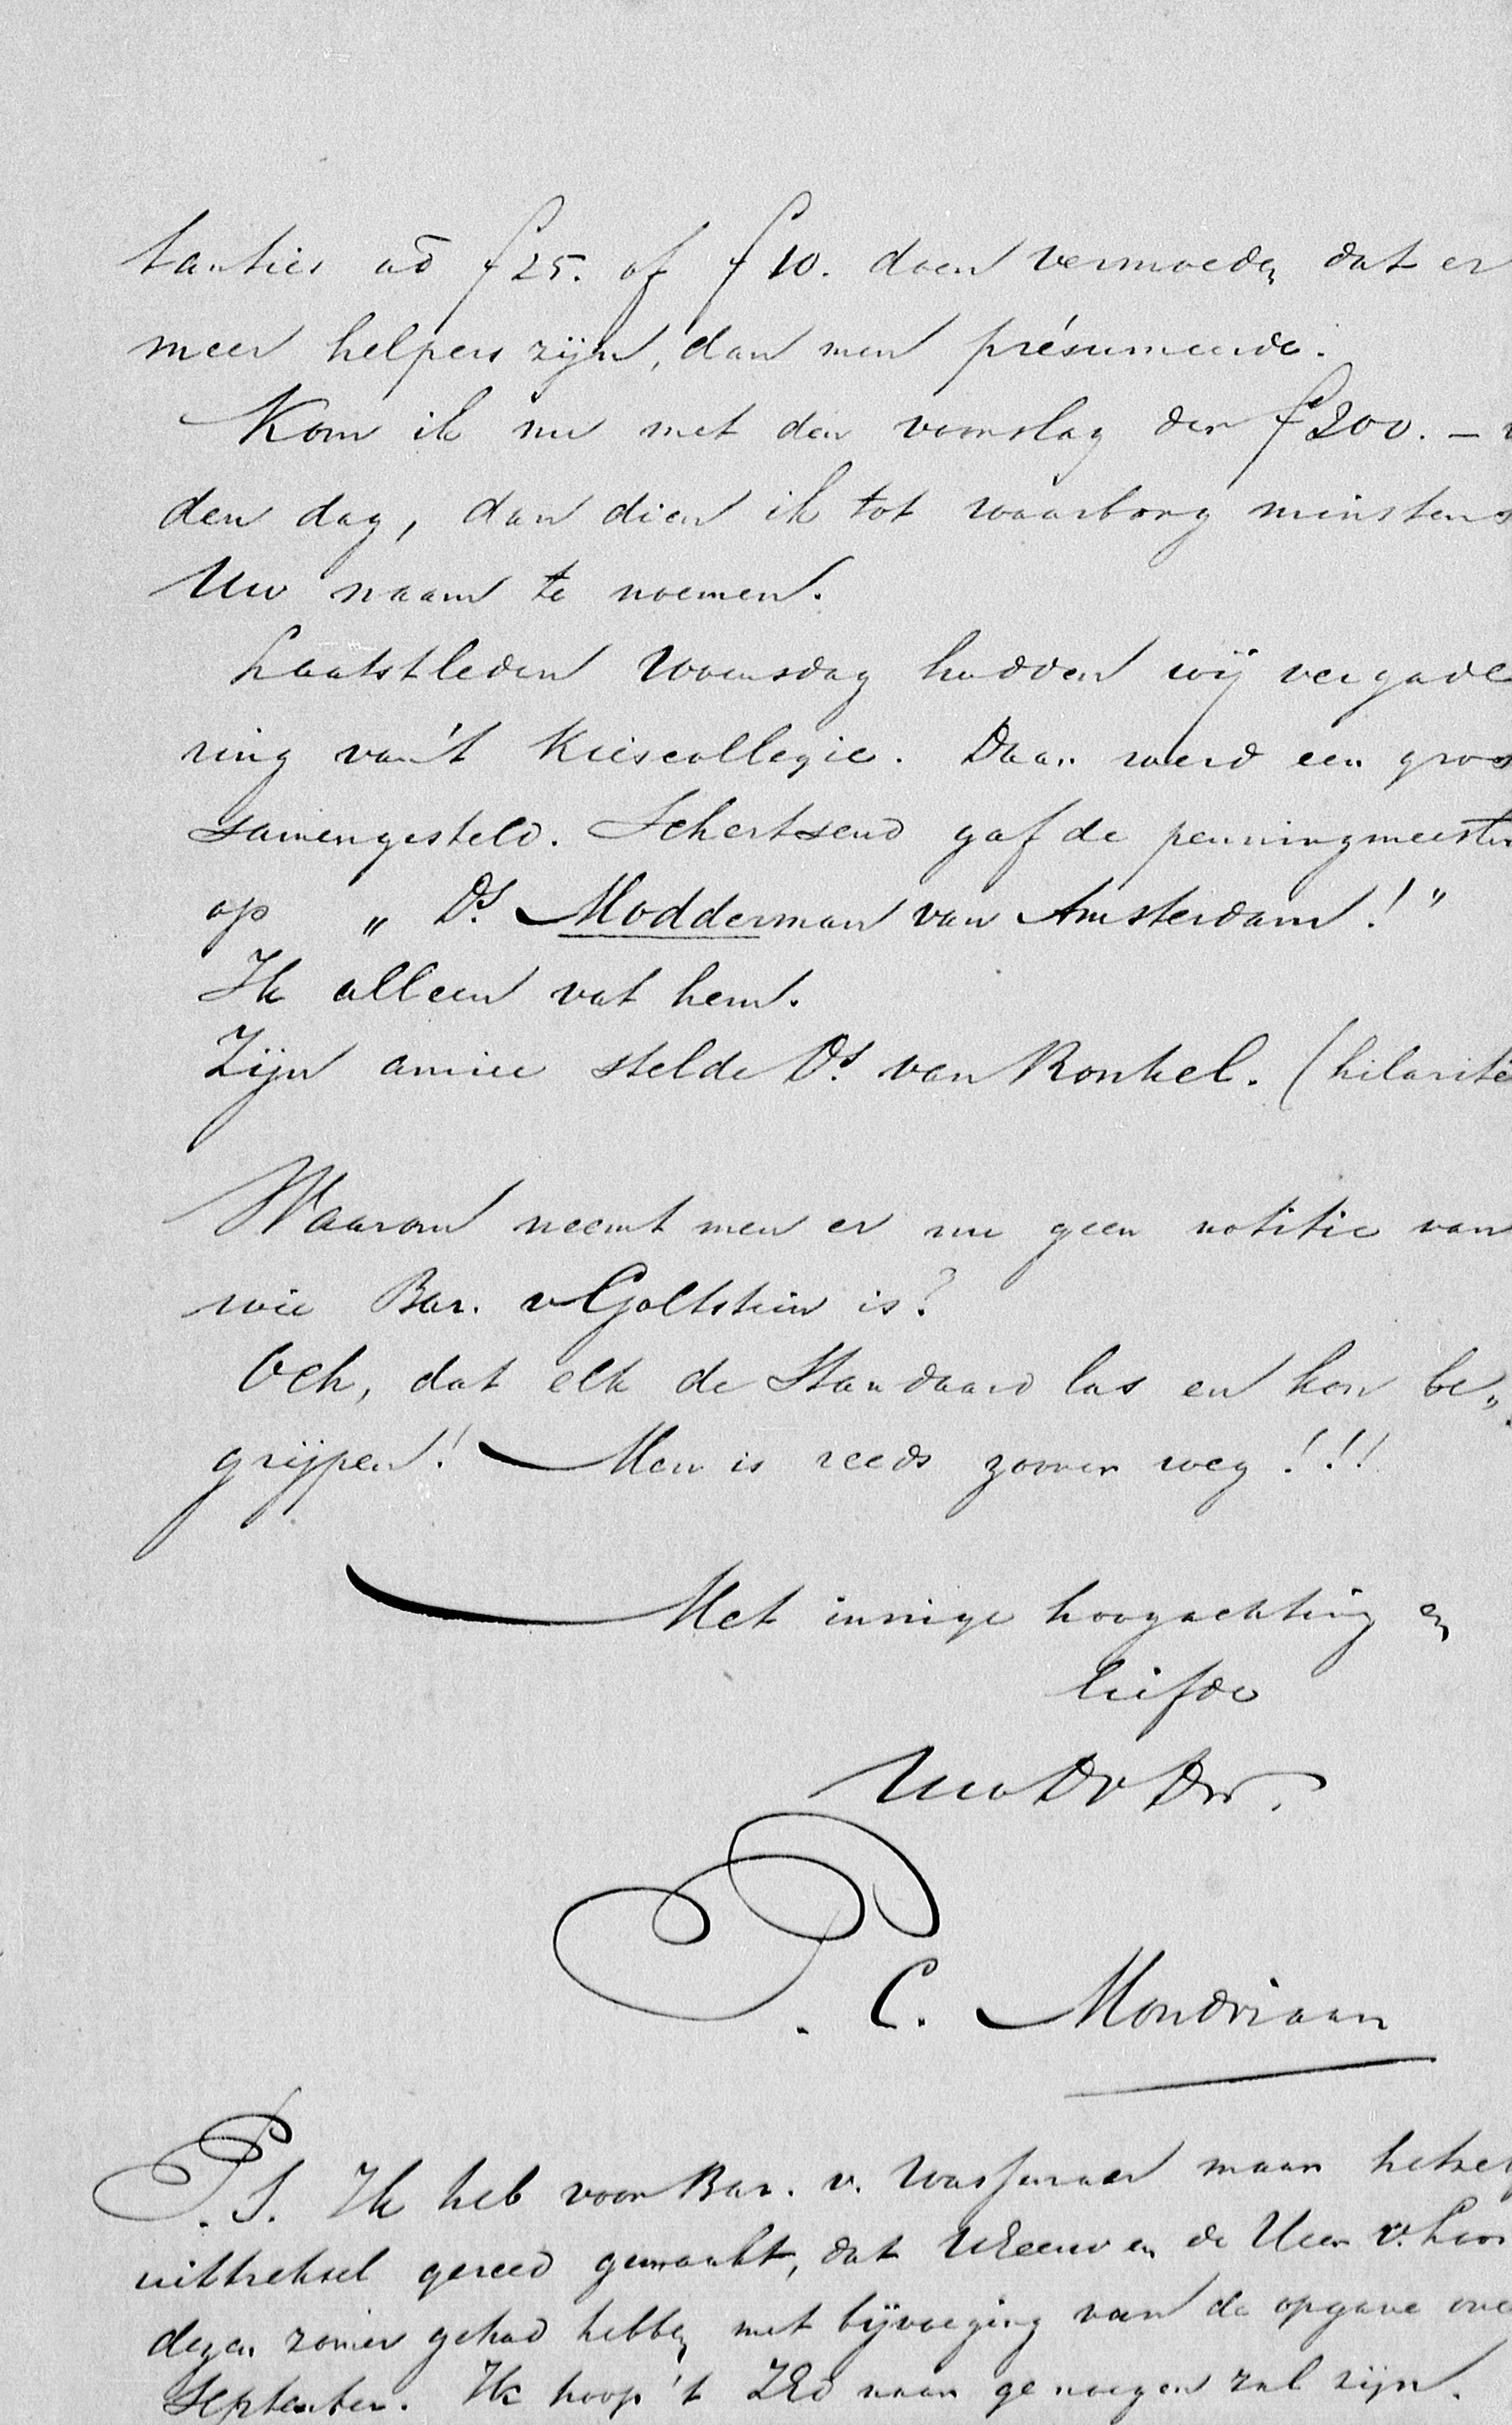 tanties ad f 25. of f 10. doen vermoeden dat er
meer helpers zijn, dan men présumeerde.
Kom ik nu met den voorslag der f 200. –
den dag, dan dien ik tot waarborg minstens
Uw naam te noemen.
Laatstleden Woensdag hadden wij vergade
ring van 't Kiescollegie. Daar werd een gros
samengesteld. Schertsend gaf de penningmeester
op „ Ds. Modderman van Amsterdam! ”
Ik alleen vat hem.
Zijn amice stelde Ds. van Ronkel. (hilarite
Waarom neemt men er nu geen notitie van
wie Bar. v Goltstein is?
Och, dat elk de Standaard las en kon be„
grijpen! Men is reeds zoover weg!!!
Met innige hoogachting en
liefde
Uw Dv Dr.
P. C. Mondriaan
P.S. Ik heb voor Bar. v. Wassenaer maar hetzelf
uittreksel gereed gemaakt, dat UEerw en de Heer v. Loo
dezen zomer gehad hebben met bijvoeging van de opgave over
September. Ik hoop 't ZEd naar genoegen zal zijn.